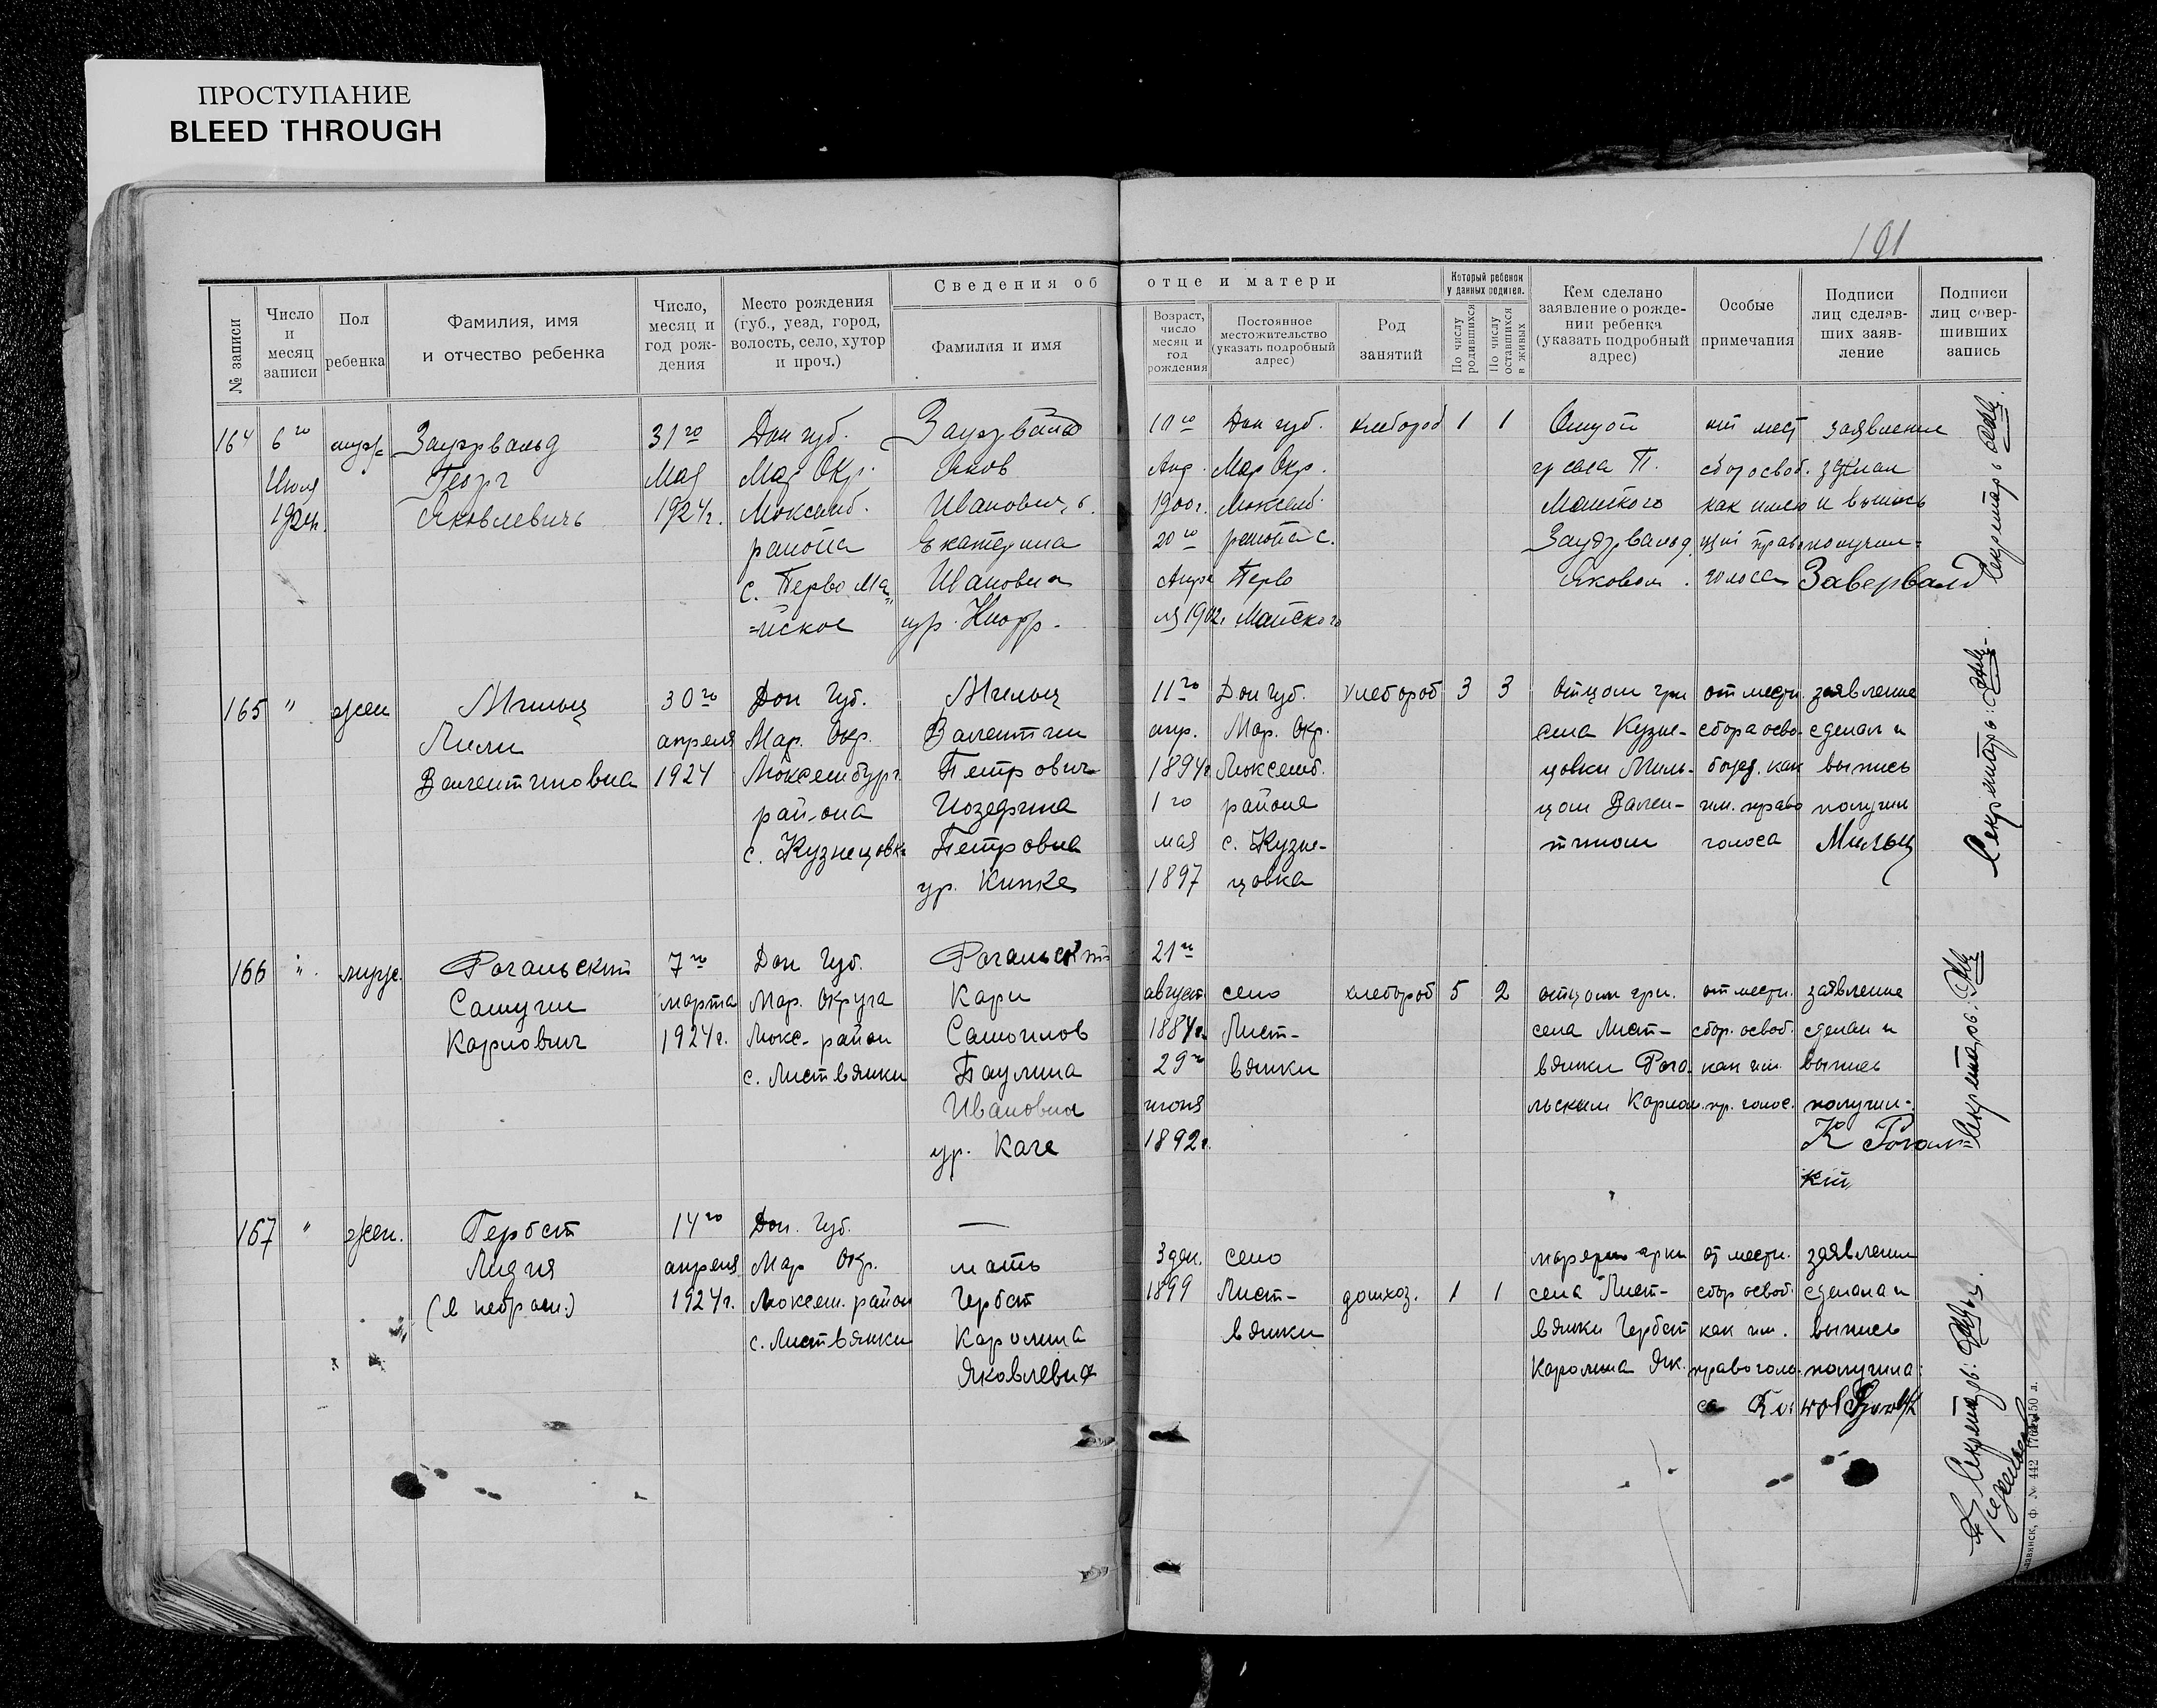 ПРОСТУПАНИЕ
BLEED THROUGH
191
Сведения об отце и матери
№ записи
Число и месяц записи
Пол ребенка
Фамилия, имя и отчество ребенка
Число, месяц и год рождения
Место рождения (губ., уезд, город, волость, село, хутор и проч.)
Фамилия и имя
Возраст, число месяц и год рождения
Постоянное местожительство (указать подробный адрес)
Род занятий
Который ребенок у данных родител.
По числу родившихся
По числу оставшихся в живых
Кем сделано заявление о рождении ребенка (указать подробный адрес)
Особые примечания
Подписи лиц сделавших заявление
Подписи лиц совершивших запись
164 6го муж. Зауэрвальд 31го Дон губ. Зауэрвальд 10го Дон губ. хлебороб 1 1 Отцом от мест заявление
Июня Георг Мая Мар Окр. Яков Апр. Мар Окр. гр села П. сбор освоб. зделал
1924г. Яковлевичь 1924г. Люксемб. Иванович 1900г. Люксемб. Майского как имею и выпись
района Екатерина 20го района с. Зауэрвальд, прав получил-
с. Перво Ма Ивановна Апре Перво Яковом голоса Завервалд
=йское ур. Кнорр. ля 1902г Майского
165 " жен Мильц 30го Дон Губ. Мильц 11го Дон Губ. хлебороб 3 3 отцом грн от мест. заявление
Лили апреля Мар. Окр. Валентин апр. Мар. Окр. села Кузне- сбора осво- сделал и
Валентиновна 1924 Люксембург Петрович 1894г Люксемб. цовки Миль- божд. как выпись
района Иозефина 1го района цом Вален- им. право получил
с. Кузнецовка Петровна мая с. Кузне- тином голоса Мильц
ур. Кинке 1897 цовка
166 " мужс. Рогальский 7го Дон Губ. Рогальский 21го
Самуил марта Мар. Округа Карл август село хлебороб 5 2 отцом грн. от местн. заявление
Карлович 1924г. Люкс- район Самоилов 1884г. Лист- села Лист- сбор. освоб. сделал и
с. Листвянки Паулина 29го вянки вянки Рога как им. выпись
Ивановна июня льским Карлом пр. голос. получил-
ур. Каге 1892г. К Рогал=
кий
167 " жен. Гербст 14го Дон. Губ. —
Лидия апреля Мар Окр. мать 3 дек. село матерью грн от местн. заявлении
1924г. Люксем. район Гербст 1899 Лист- домхоз. 1 1 села Лист- сбор освоб. сделана и
с. Листвянки Каролина вянки вянки Гербст как им. выпись
Яковлевна Каролина Як. право голо- получила:
са
Секретарь
Секретарь:
Секретарь:
Секретарь: